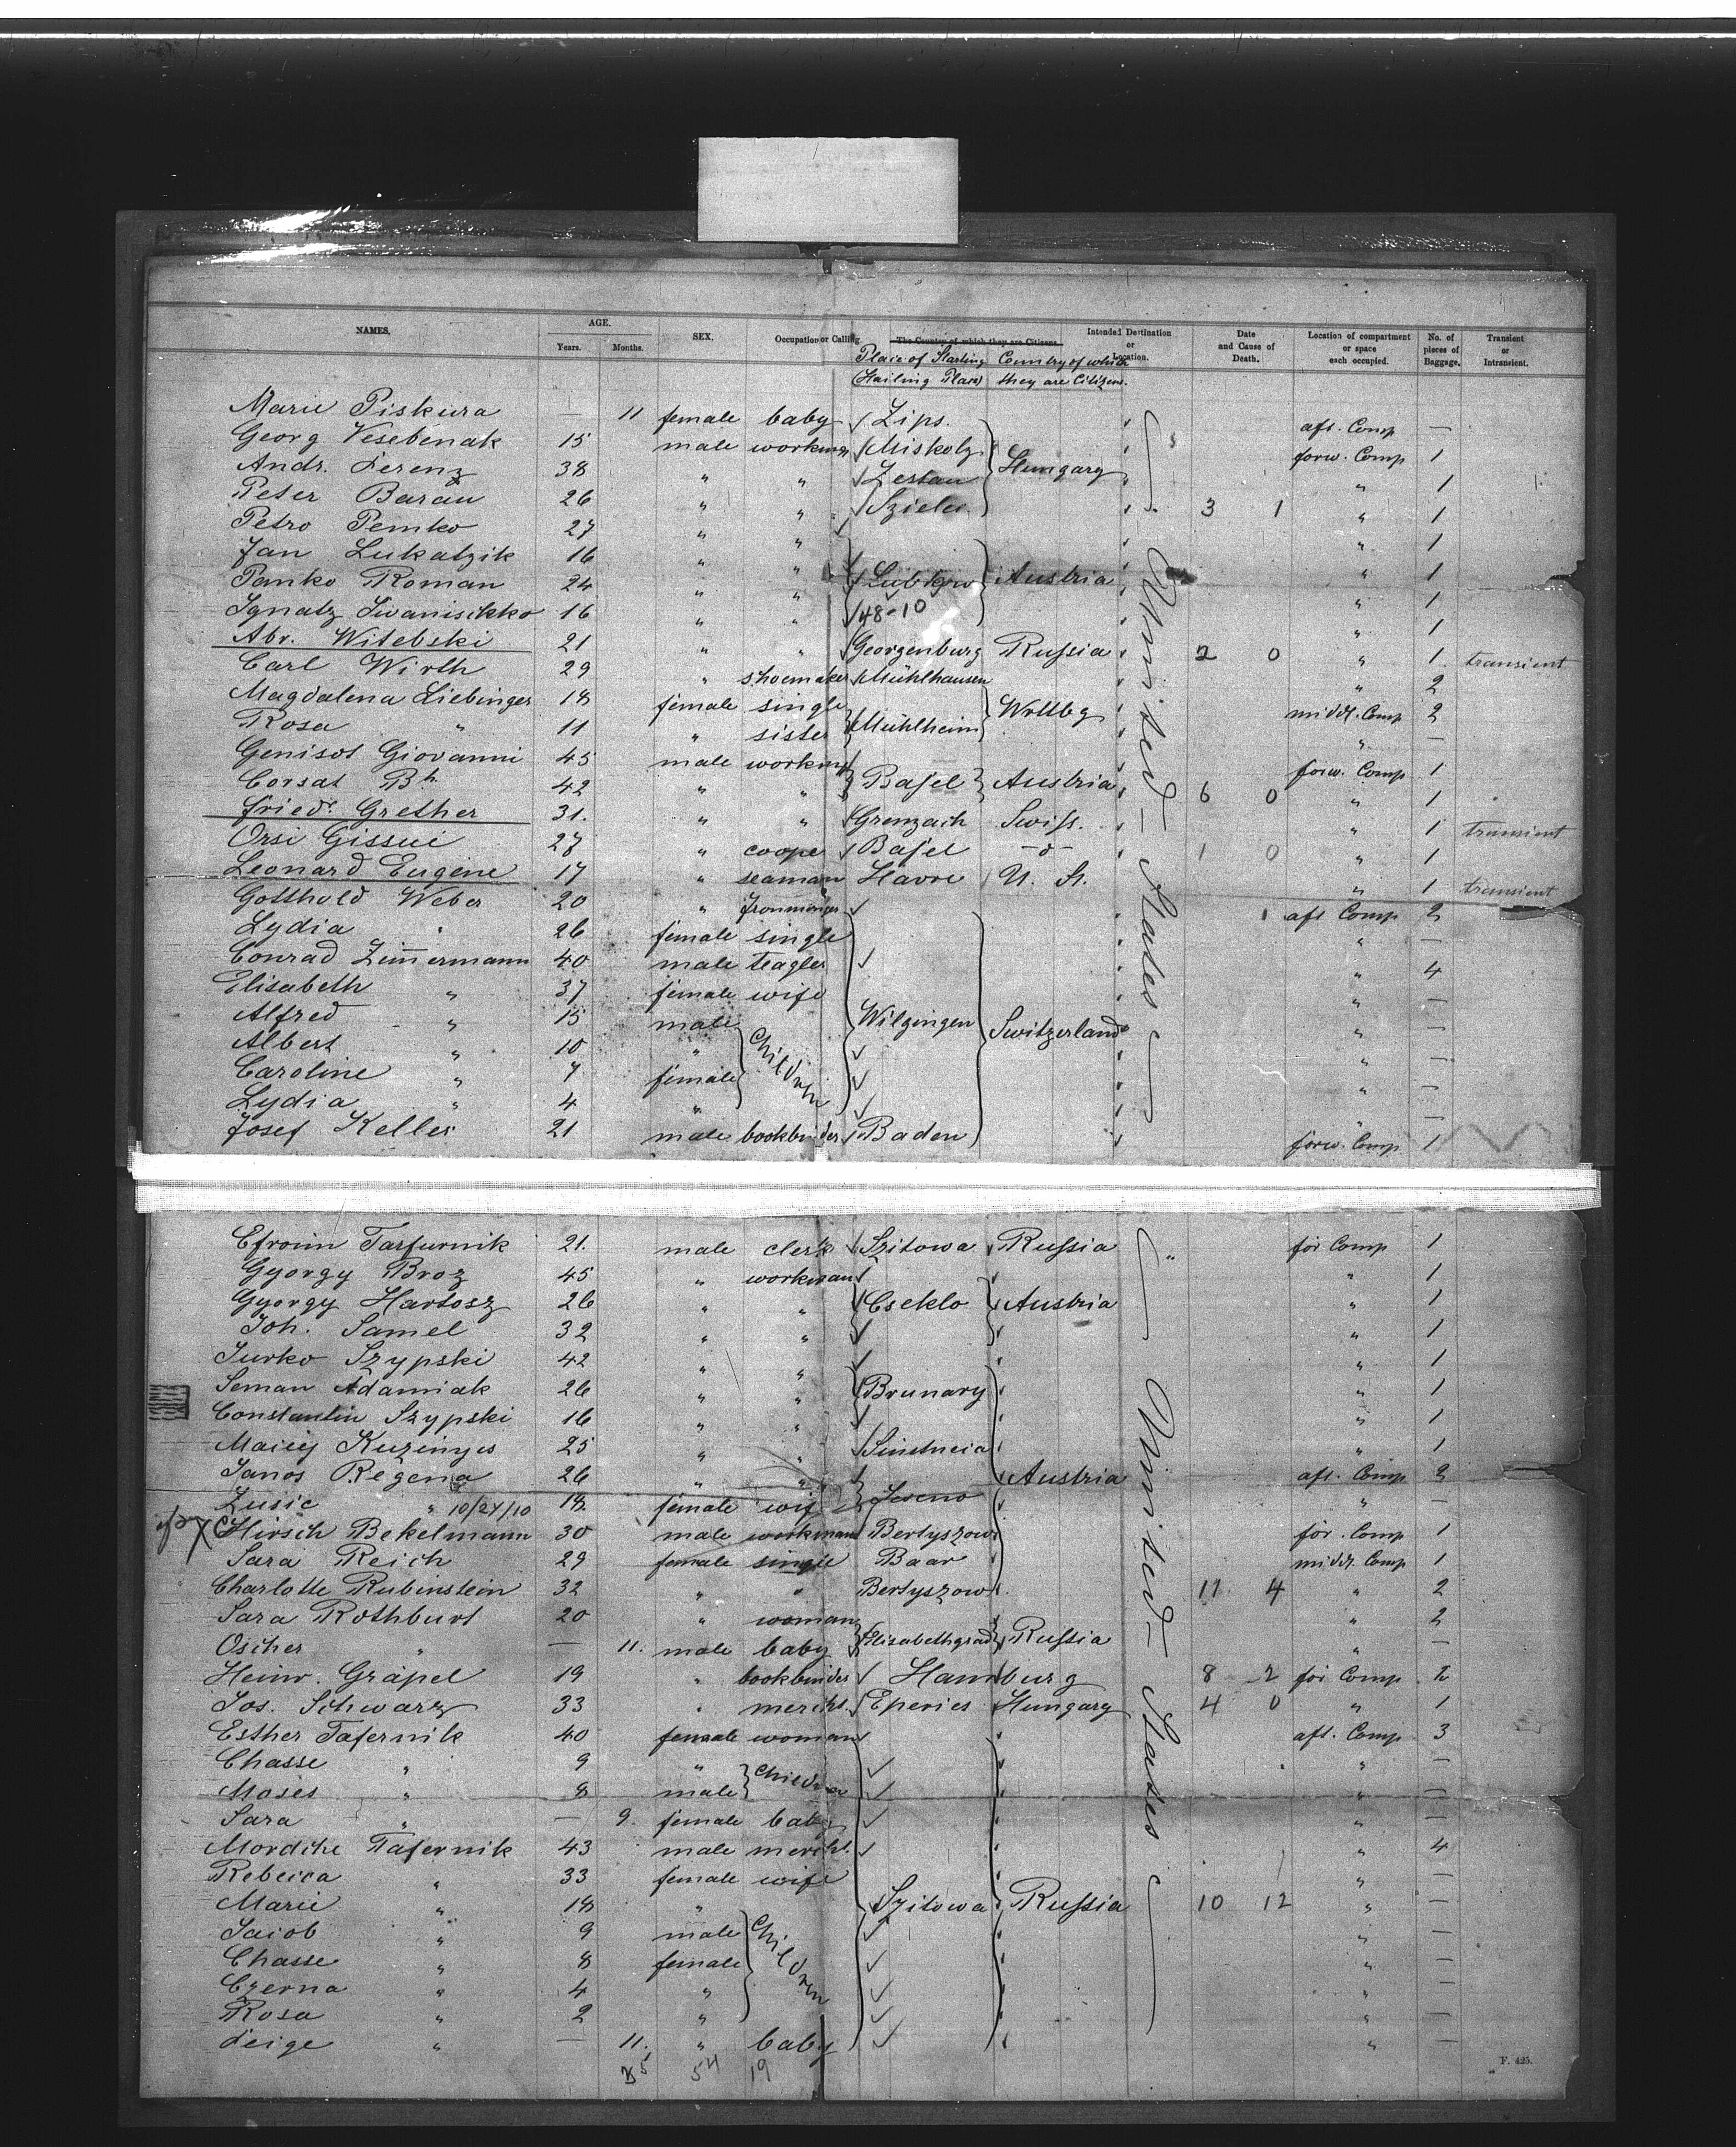 NAMES. AGE. SEX. Occupation or Calling. The Country of which they are Citizens. Intended Destination or Location. Date and Cause of Death. Location of compartment or space each occupied. No. of pieces of Baggage. Transient or Intransient.
Years. Months. Place of Starting (Hailing Place) Country of which they are Citizens.
Marie Piskura — 11 female baby Zips. aft. Comp —
Georg Vesebenak 15 male workmn Miskolz forw. Comp 1
Andr. Ferenz 38 " " Zestau Hungary " 1
Peter Barau 26 " " 3 1 " 1
Petro Pemko 27 " " " 1
Jan Lukatzik 16 " " " 1
Panko Roman 24 " " Lubkow Austria " 1
Ignatz Iwanisikko 16 " " 48-10 " 1
Abr. Witebski 21 " " Georgenburg Russia 2 0 " 1 transient
Carl Wirth 29 " shoemaker Mühlhausen " 2
Magdalena Liebinger 18 female single Wrttbg middl. Comp 2
Rosa " 11 " sister Mühlheim " —
Genisot Giovanni 45 male workmn forw. Comp 1
Corsat Bh 42 " " Basel Austria 6 0 " 1
Friedr Grether 31. " " Grenzach Swiss. " 1 transient
Orsi Gissui 27 " cooper Basel -d- 1 0 " 1
Leonard Eugene 17 " seaman Havre U. St. " 1 transient
Gotthold Weber 20 " Ironmonger aft Comp 2
Lydia " 26 female single " —
Conrad Zimmermann 40 male teagler " 4
Elisabeth " 37 female wife " —
Alfred " 15 male Wilzingen Switzerland " —
Albert " 10 " Children " —
Caroline " 7 female " —
Lydia " 4 " " —
Josef Keller 21 male bookbinder Baden forw. Comp. 1
United States
Efroim Tarfurnik 21. male clerk Szitowa Russia " for Comp 1
Gyorgy Broz 45 " workman " 1
Gyorgy Hartosz 26 " " Cseklo Austria " 1
Joh. Samel 32 " " " 1
Jurko Szypski 42 " " " 1
Seman Adamiak 26 " " Brunary " 1
Constantin Szypski 16 " " " 1
Maciej Kuzinyis 25 " " " 1
Janos Regena 26 " " Austria aft. Comp 2
Zusie " 10/27/10 18. female wife Jeseno " —
Hirsch Bekelmann 30 male workman Bertyszow for. Comp 1
Sara Reich 29 female single Baar middl. Comp 1
Charlotte Rubinstein 32 " " Bertyszow 11 4 " 2
Sara Rothburt 20 " woman " 2
Oscher " — 11. male baby Elisabethgrad Russia " —
Heinr. Gräpel 19 " bookbinder Hamburg 8 2 for Comp 2
Jos. Schwarz 33 " mercht. Eperies Hungary 4 0 " 1
Esther Tafernik 40 female woman aft. Comp 3
Chasse " 9 " Children " —
Moses " 8 male " —
Sara " — 9. female baby " —
Mordche Tafernik 43 male mercht. " 4
Rebecca " 33 female wife " —
Marie " 18 " Szitowa Russia 10 12 " —
Jacob " 9 male Children " —
Chasse " 8 female " —
Czerna " 4 " " —
Rosa " 2 " " —
Feige " — 11. " baby " —
United States
54 19
F. 425.